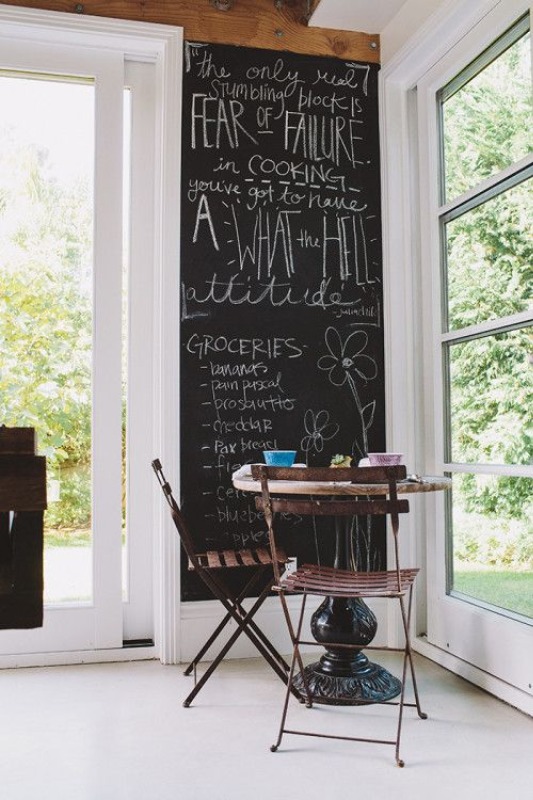 the only real
stumbling block is
FEAR OF FAILURE.
in COOKING
you've got to have
A WHAT the HELL
attitude
GROCERIES-
- bananas
- pain pascal
- prosciutto
- cheddar
- Pax bread
- blueberries